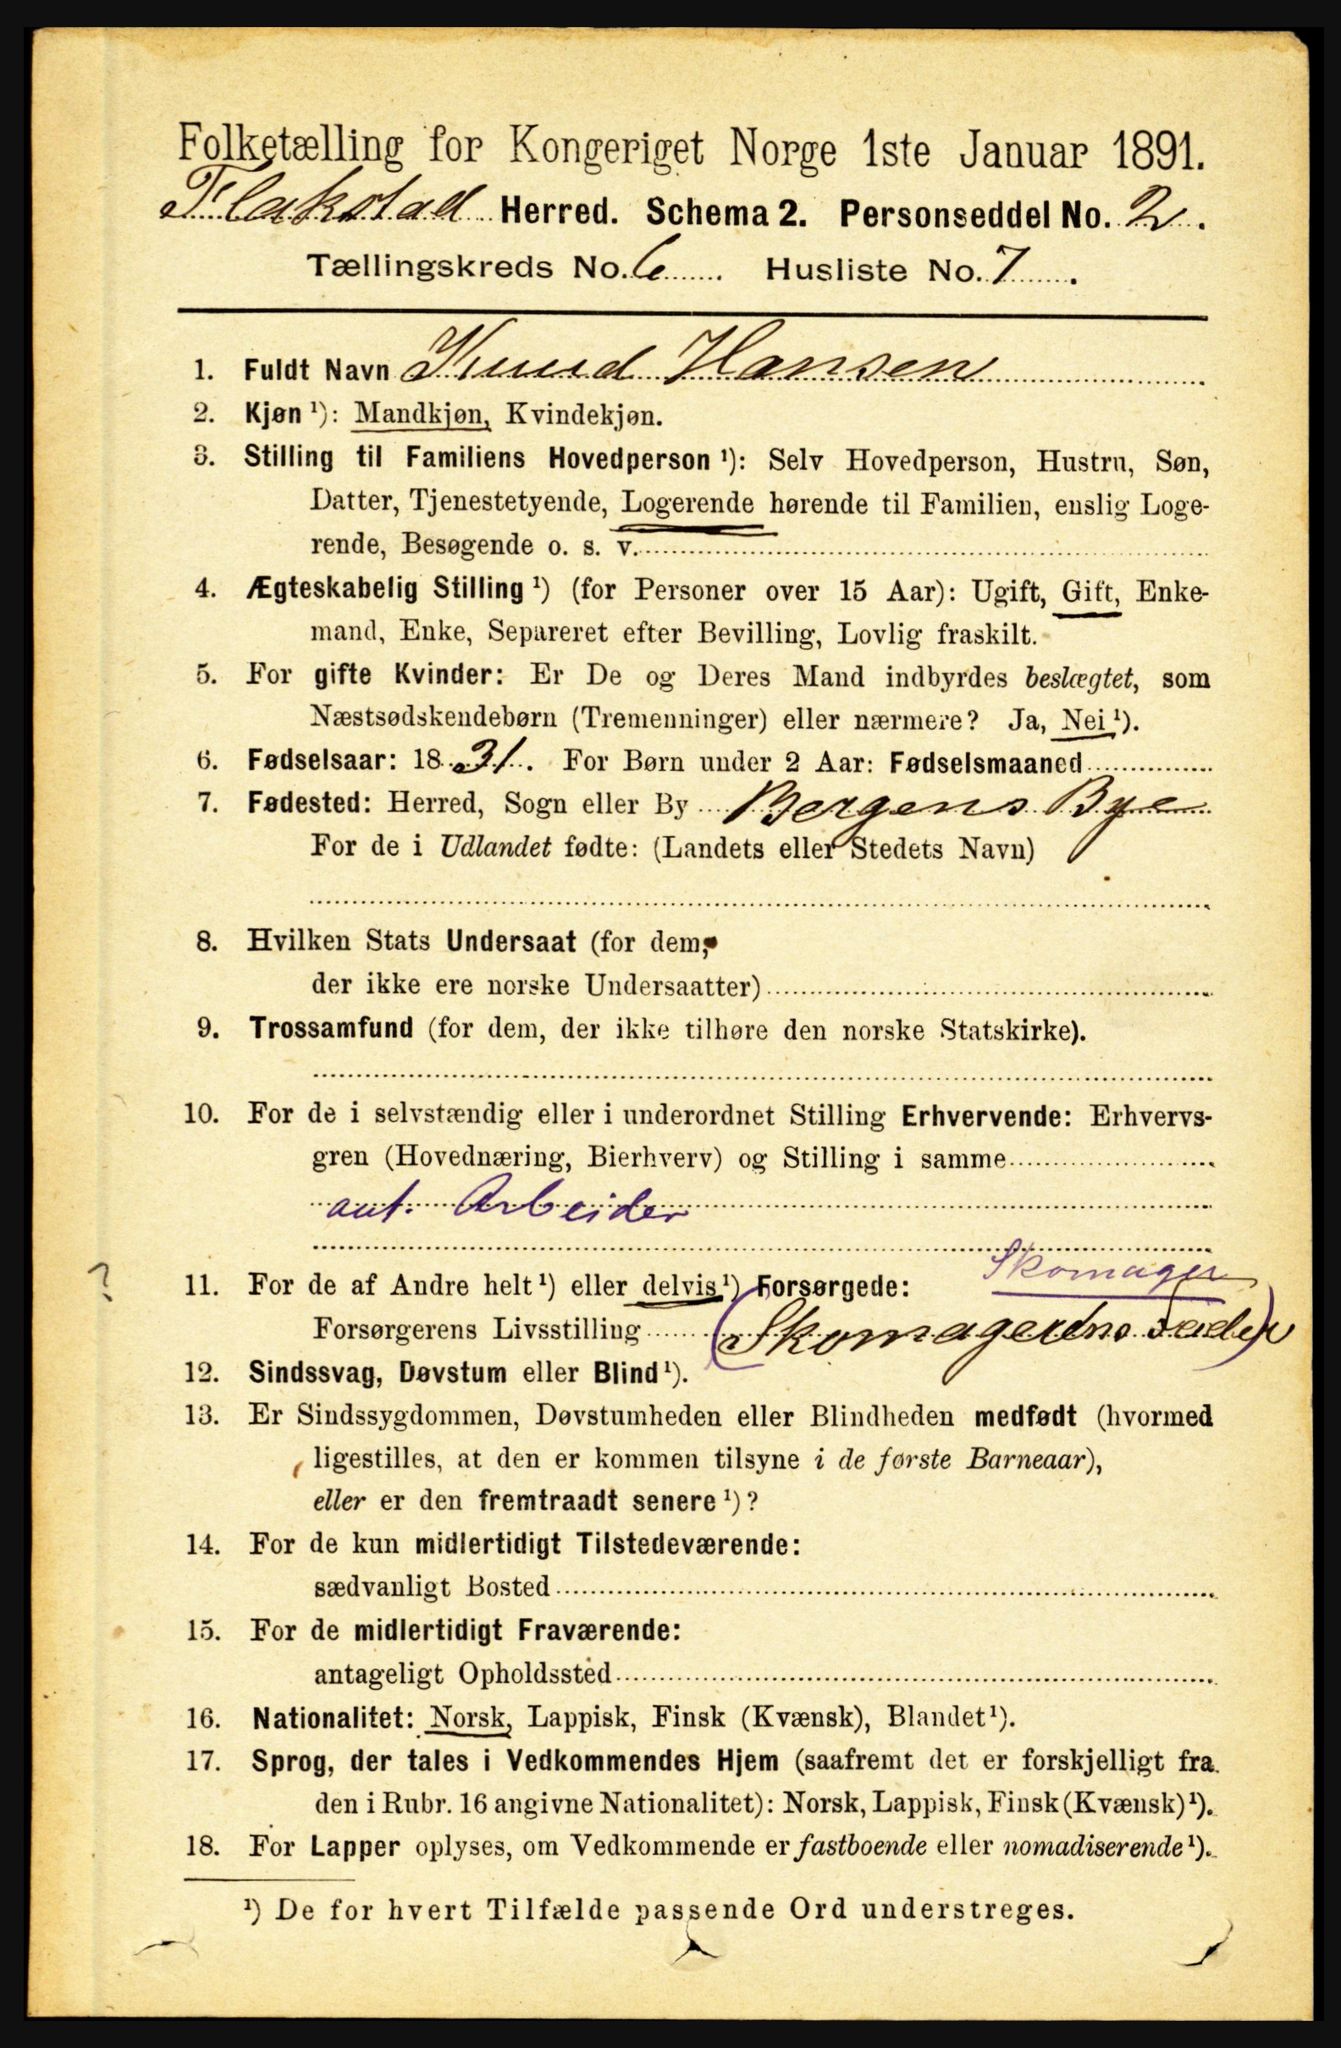 Folketælling for Kongeriget Norge 1ste Januar 1891.
Flakstad Herred. Schema 2. Personseddel No. 2.
Tællingskreds No. 6 Husliste No. 7.
1. Fuldt Navn Knud Hansen
2. Kjøn ¹): Mandkjøn, Kvindekjøn.
3. Stilling til Familiens Hovedperson ¹): Selv Hovedperson, Hustru, Søn,
Datter, Tjenestetyende, Logerende hørende til Familien, enslig Loge-
rende, Besøgende o. s. v.
4. Ægteskabelig Stilling ¹) (for Personer over 15 Aar): Ugift, Gift, Enke-
mand, Enke, Separeret efter Bevilling, Lovlig fraskilt.
5. For gifte Kvinder: Er De og Deres Mand indbyrdes beslægtet, som
Næstsødskendebørn (Tremenninger) eller nærmere? Ja, Nei ¹).
6. Fødselsaar: 1831. For Børn under 2 Aar: Fødselsmaaned
7. Fødested: Herred, Sogn eller By Bergens Bye
For de i Udlandet fødte: (Landets eller Stedets Navn)
8. Hvilken Stats Undersaat (for dem,
der ikke ere norske Undersaatter)
9. Trossamfund (for dem, der ikke tilhøre den norske Statskirke).
10. For de i selvstændig eller i underordnet Stilling Erhvervende: Erhvervs-
gren (Hovednæring, Bierhverv) og Stilling i samme
ant. Arbeider
Skomager
? 11. For de af Andre helt ¹) eller delvis ¹) Forsørgede:
Forsørgerens Livsstilling (Skomager
12. Sindssvag, Døvstum eller Blind ¹).
13. Er Sindssygdommen, Døvstumheden eller Blindheden medfødt (hvormed
ligestilles, at den er kommen tilsyne i de første Barneaar),
eller er den fremtraadt senere ¹)?
14. For de kun midlertidigt Tilstedeværende:
sædvanligt Bosted
15. For de midlertidigt Fraværende:
antageligt Opholdssted
16. Nationalitet: Norsk, Lappisk, Finsk (Kvænsk), Blandet ¹).
17. Sprog, der tales i Vedkommendes Hjem (saafremt det er forskjelligt fra
den i Rubr. 16 angivne Nationalitet): Norsk, Lappisk, Finsk (Kvænsk) ¹).
18. For Lapper oplyses, om Vedkommende er fastboende eller nomadiserende ¹).
¹) De for hvert Tilfælde passende Ord understreges.